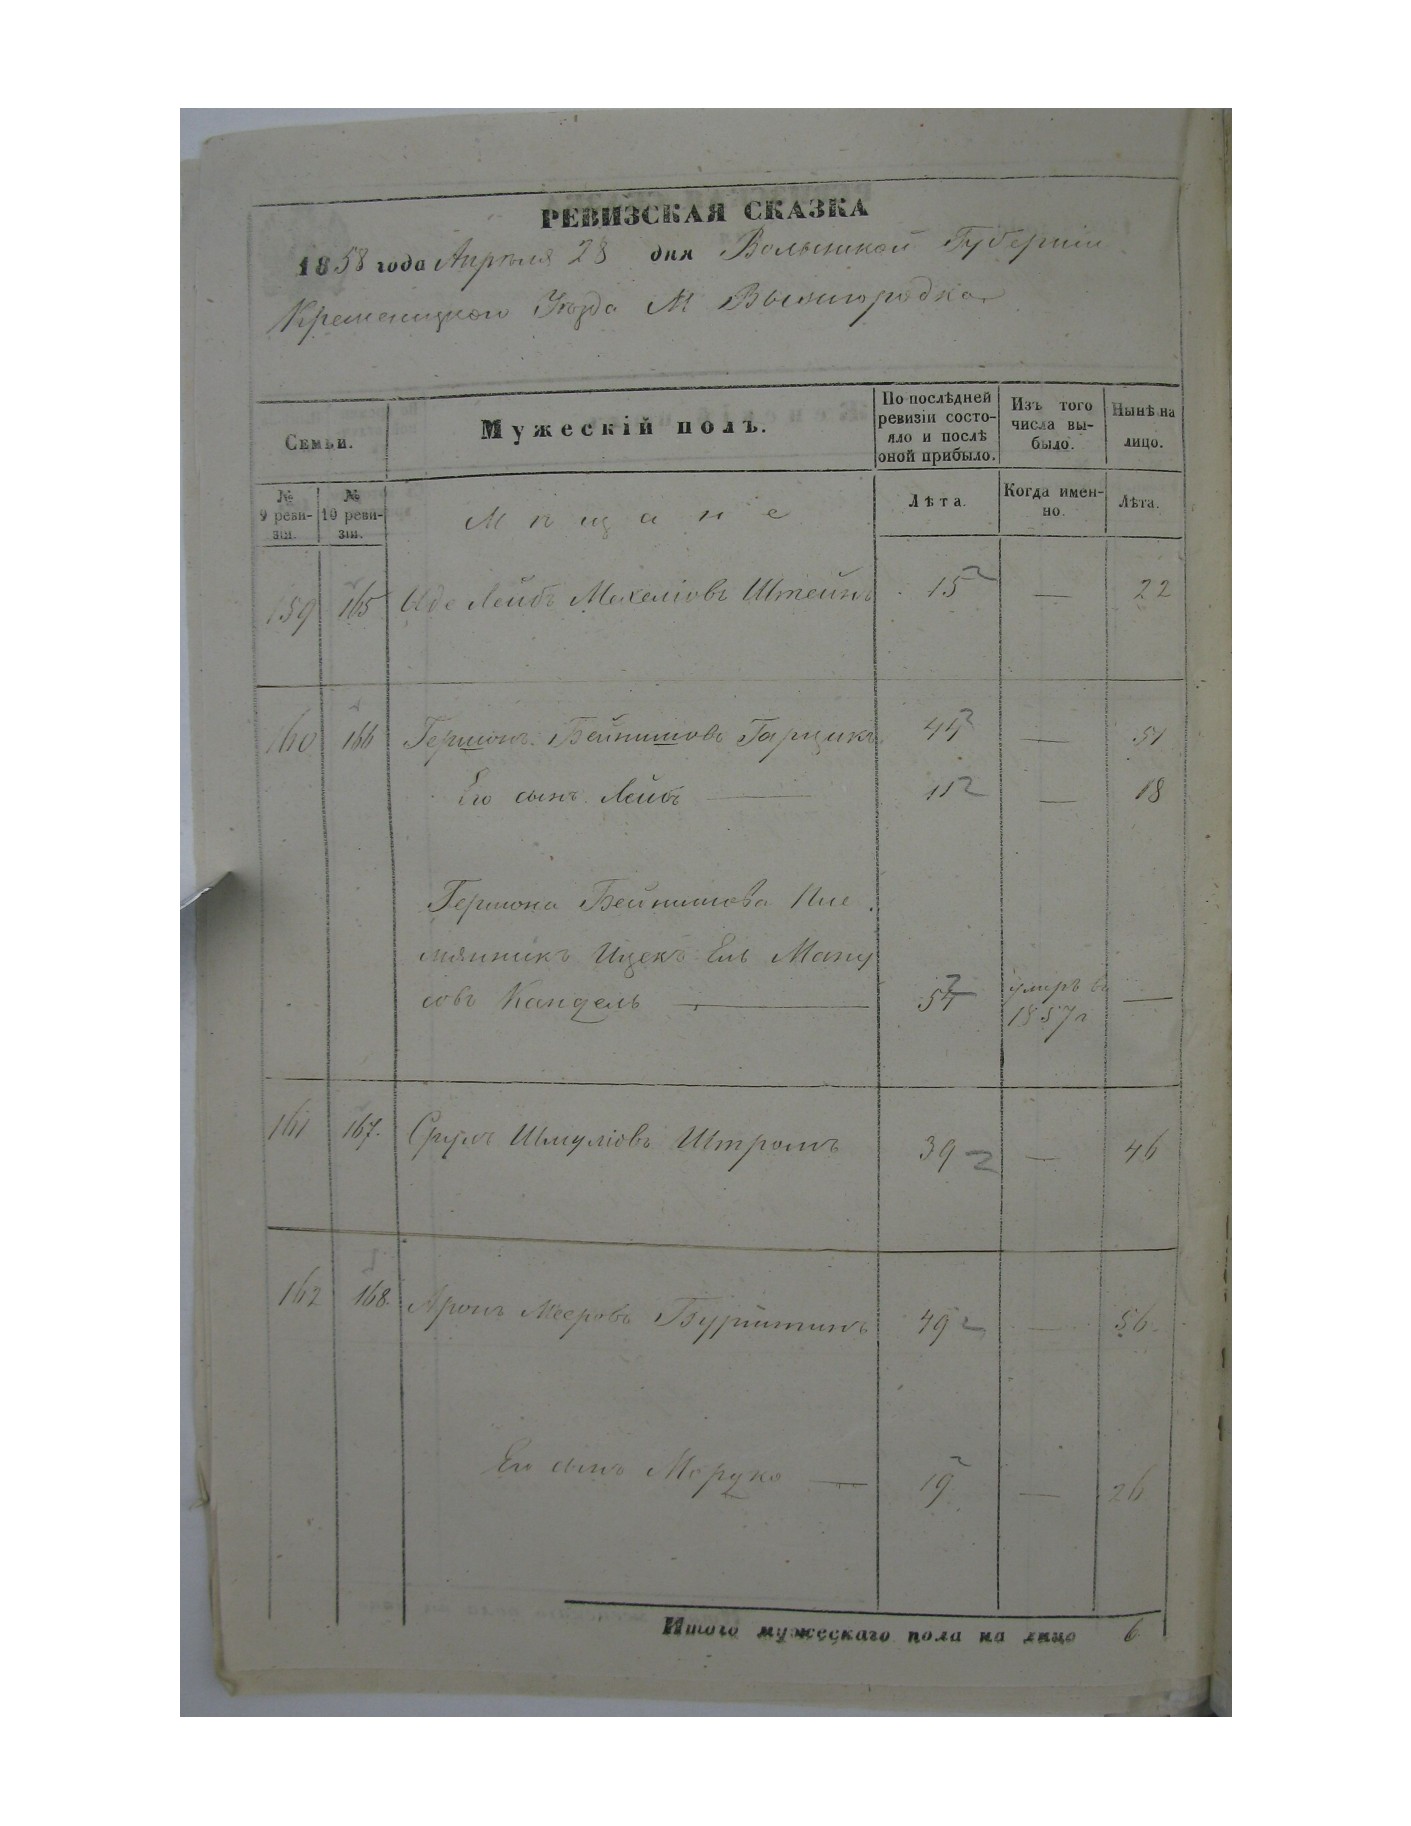 РЕВИЗСКАЯ СКАЗКА
1858 года Апреля 28 дня Волынской Губернiи
Кременецкого Уѣзда М Вышгородка
Семьи.
Мужескiй полъ.
По послѣдней ревизiи состояло и послѣ оной прибыло.
Изъ того числа выбыло.
Нынѣ на лицо.
№ 9 ревизiи.
№ 10 ревизiи.
Мѣщане
Лѣта.
Когда именно.
Лѣта.
159 165 Лейбъ Мехелiовъ Штейнъ 15 — 22
160 166 Гершонъ Бейнишовъ Гарцикъ 44 — 51
Его сынъ Лейбъ — 11 — 18
Гершона Бейнишова Пле
мянникъ Ицекъ Ель Ману
совъ Кандель — 54 умеръ въ 1857 г —
161 167. Сруль Шмулiовъ Штромъ 39 — 46
162 168. Аронъ Мееровъ Бурштинъ 49 — 56
Его сынъ Мордко — 19 — 26
Итого мужескаго пола на лицо 6